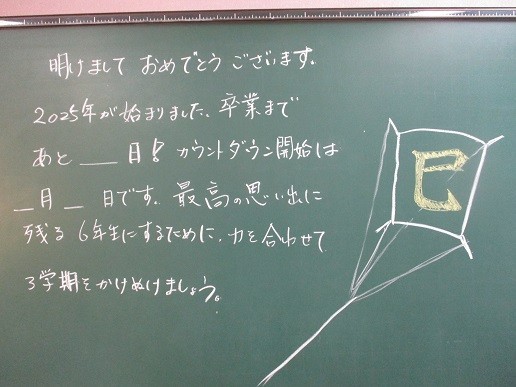 明けまして おめでとう ございます。
2025年が始まりました。卒業まで
あと ___ 日! カウントダウン開始は
__月 __ 日です。最高の思い出に
残る 6年生にするために、力を合わせて
3学期をかけぬけましょう。
巳